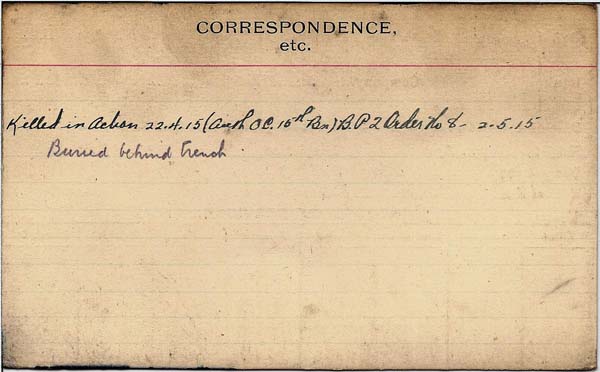 CORRESPONDENCE,
etc.
Killed in Action 22.4.15 (Auth O.C. 15th Bn) B.P 2 Order No 8- 2.5.15
Buried behind trench